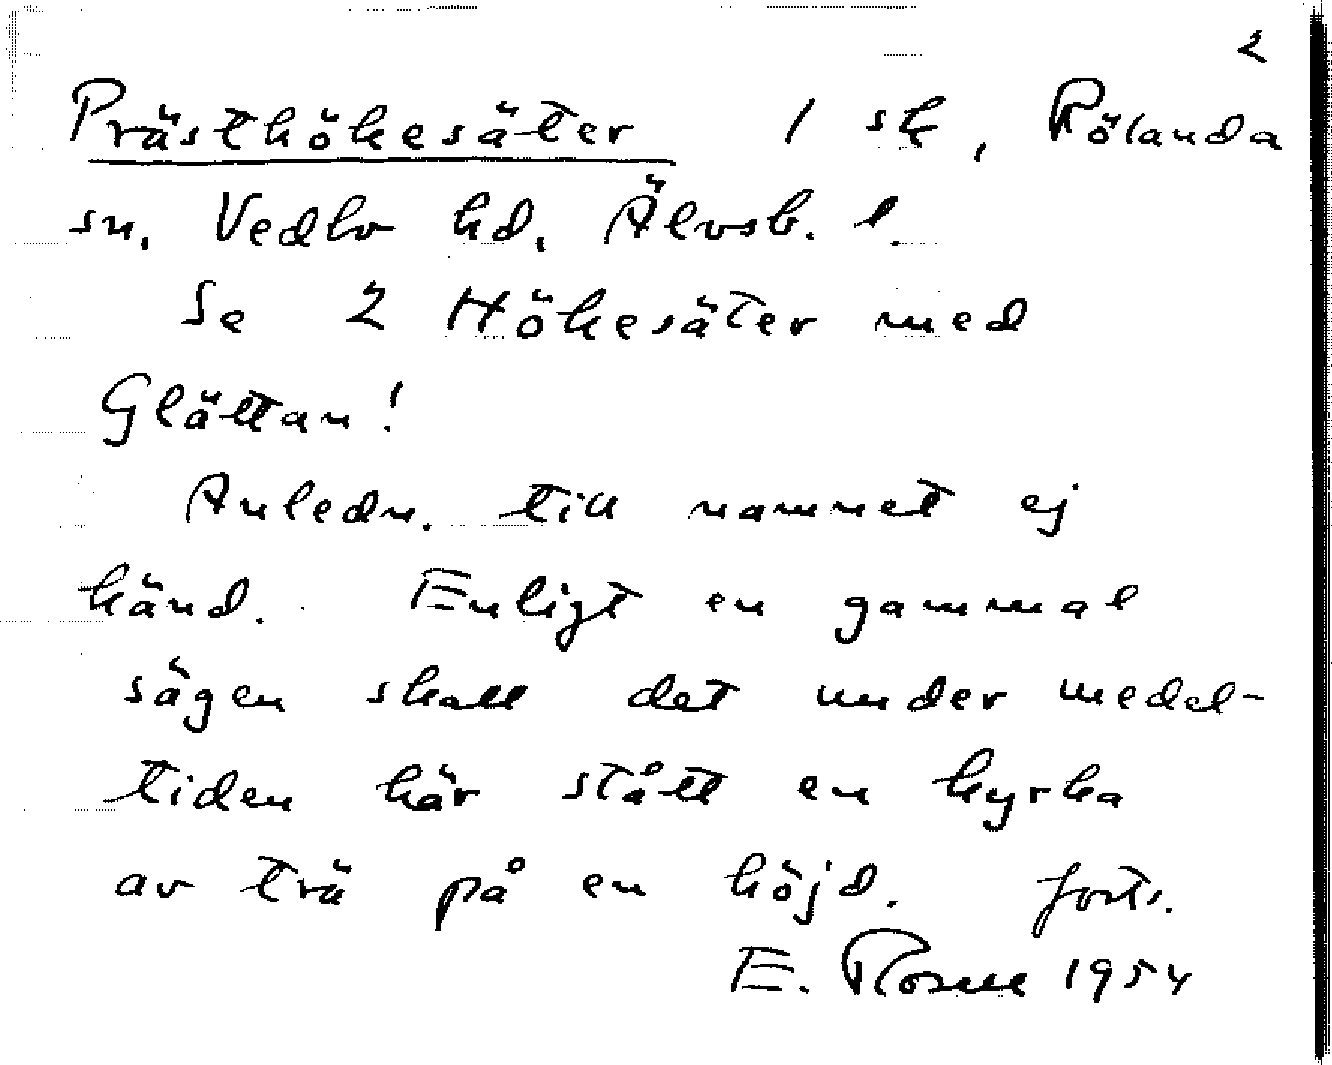 2
Prästhökesäter 1 sk, Rölanda
sn, Vedbo hd, Älvsb. l.
Se 2 Hökesäter med
Glättan!
Anledn. till namnet ej
känd. Enligt en gammal
sägen skall det under medel-
tiden här stått en kyrka
av trä på en höjd. forts.
E. Rosell 1954